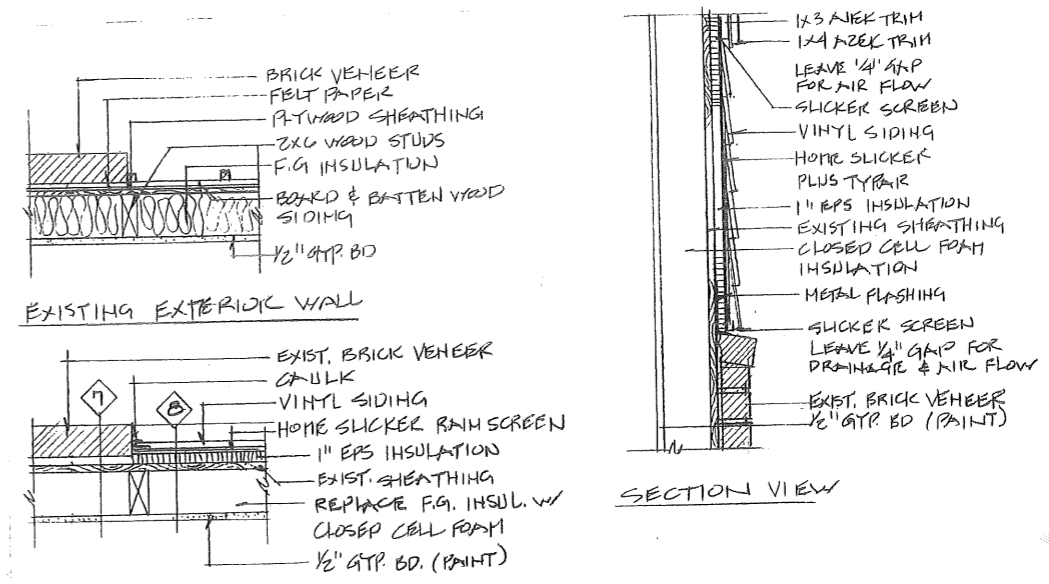 BRICK VENEER
FELT PAPER
PLYWOOD SHEATHING
2X6 WOOD STUDS
F.G INSULATION
BOARD & BATTEN WOOD
SIDING
1/2" GYP. BD
EXISTING EXTERIOR WALL
EXIST. BRICK VENEER
CAULK
VINYL SIDING
HOME SLICKER RAIN SCREEN
1" EPS INSULATION
EXIST. SHEATHING
REPLACE F.G. INSUL. W/
CLOSED CELL FOAM
1/2" GYP. BD. (PAINT)
7
8
1X3 AZEK TRIM
1X4 AZEK TRIM
LEAVE 1/4" GAP
FOR AIR FLOW
SLICKER SCREEN
VINYL SIDING
HOME SLICKER
PLUS TYPAR
1" EPS INSULATION
EXISTING SHEATHING
CLOSED CELL FOAM
INSULATION
METAL FLASHING
SLICKER SCREEN
LEAVE 1/4" GAP FOR
DRAINAGE & AIR FLOW
EXIST. BRICK VENEER
1/2" GYP. BD (PAINT)
SECTION VIEW